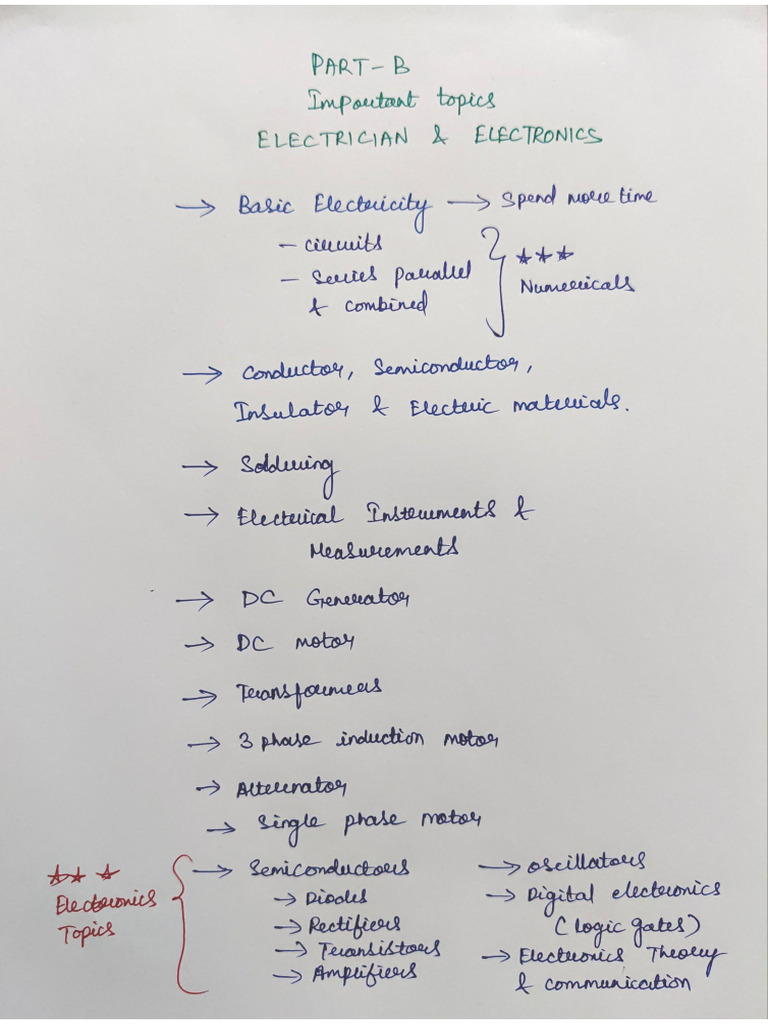 PART-B
Important topics
ELECTRICIAN & ELECTRONICS
→ Basic Electricity → Spend more time
- circuits
- Series parallel
& combined
★★★
Numericals
→ Conductor, Semiconductor,
Insulator & Electric materials.
→ Soldering
→ Electrical Instruments &
Measurements
→ DC Generator
→ DC motor
→ Transformers
→ 3 phase induction motor
→ Alternator
→ Single phase motor
★★★
Electronics
Topics
→ Semiconductors
→ Diodes
→ Rectifiers
→ Transistors
→ Amplifiers
→ oscillators
→ Digital electronics
(logic gates)
→ Electronics Theory
& communication